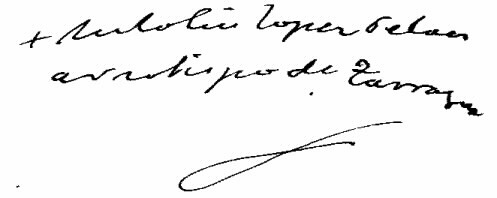 + Antolín López Peláez
arzobispo de Tarragona